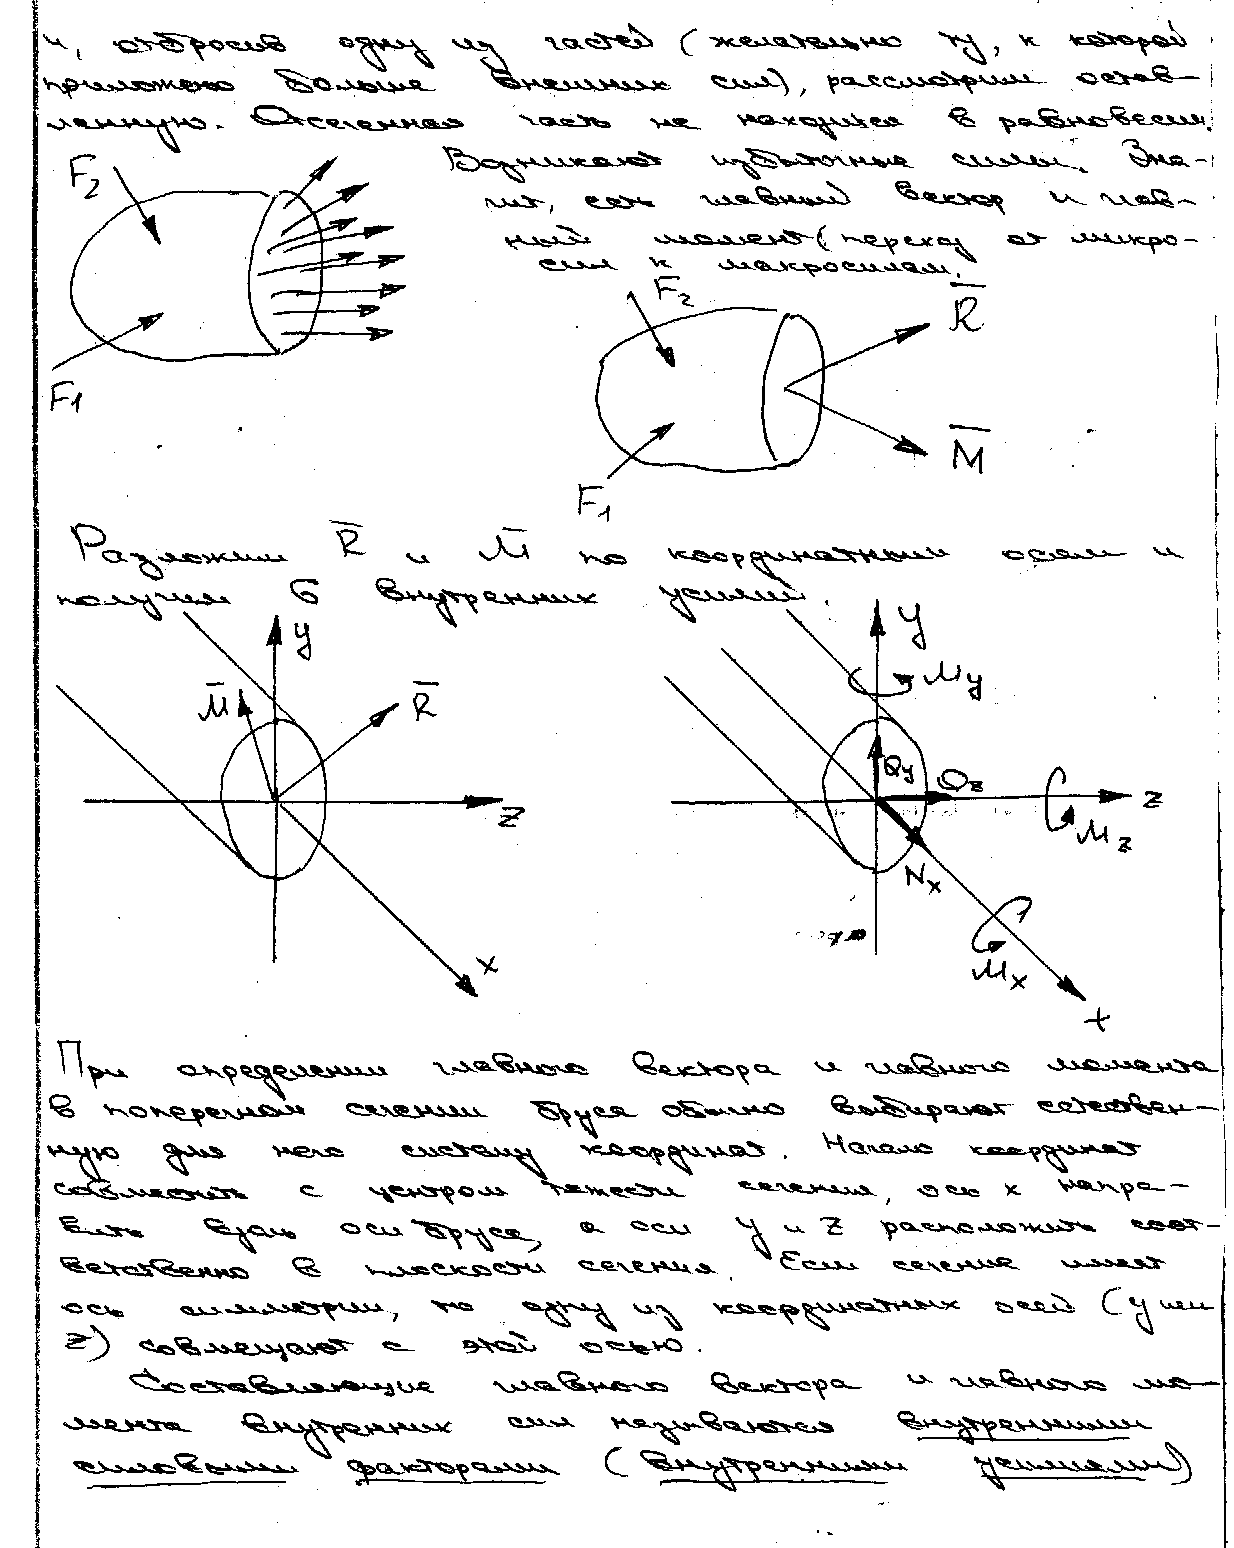 и, отбросив одну из частей (желательно ту, к которой
приложено больше внешних сил), рассмотрим остав-
ленную. Отсеченная часть не находится в равновесии.
Возникают избыточные силы. Зна-
чит, есть главный вектор и глав-
ный момент (переход от микро-
сил к макросилам.
F₂
F₁
F₂
R̅
M̅
F₁
Разложим R̅ и M̅ по координатным осям и
получим 6 внутренних усилий.
y
M̅
R̅
z
x
y
My
Qy
Qz
z
Mz
Nx
Mx
x
При определении главного вектора и главного момента
в поперечном сечении бруса обычно выбирают естествен-
ную для него систему координат. Начало координат
совместить с центром тяжести сечения, ось x напра-
вить вдоль оси бруса, а оси y и z расположить соот-
ветственно в плоскости сечения. Если сечение имеет
ось симметрии, то одну из координатных осей (y или
z) совмещают с этой осью.
Составляющие главного вектора и главного мо-
мента внутренних сил называются внутренними
силовыми факторами (внутренними усилиями)